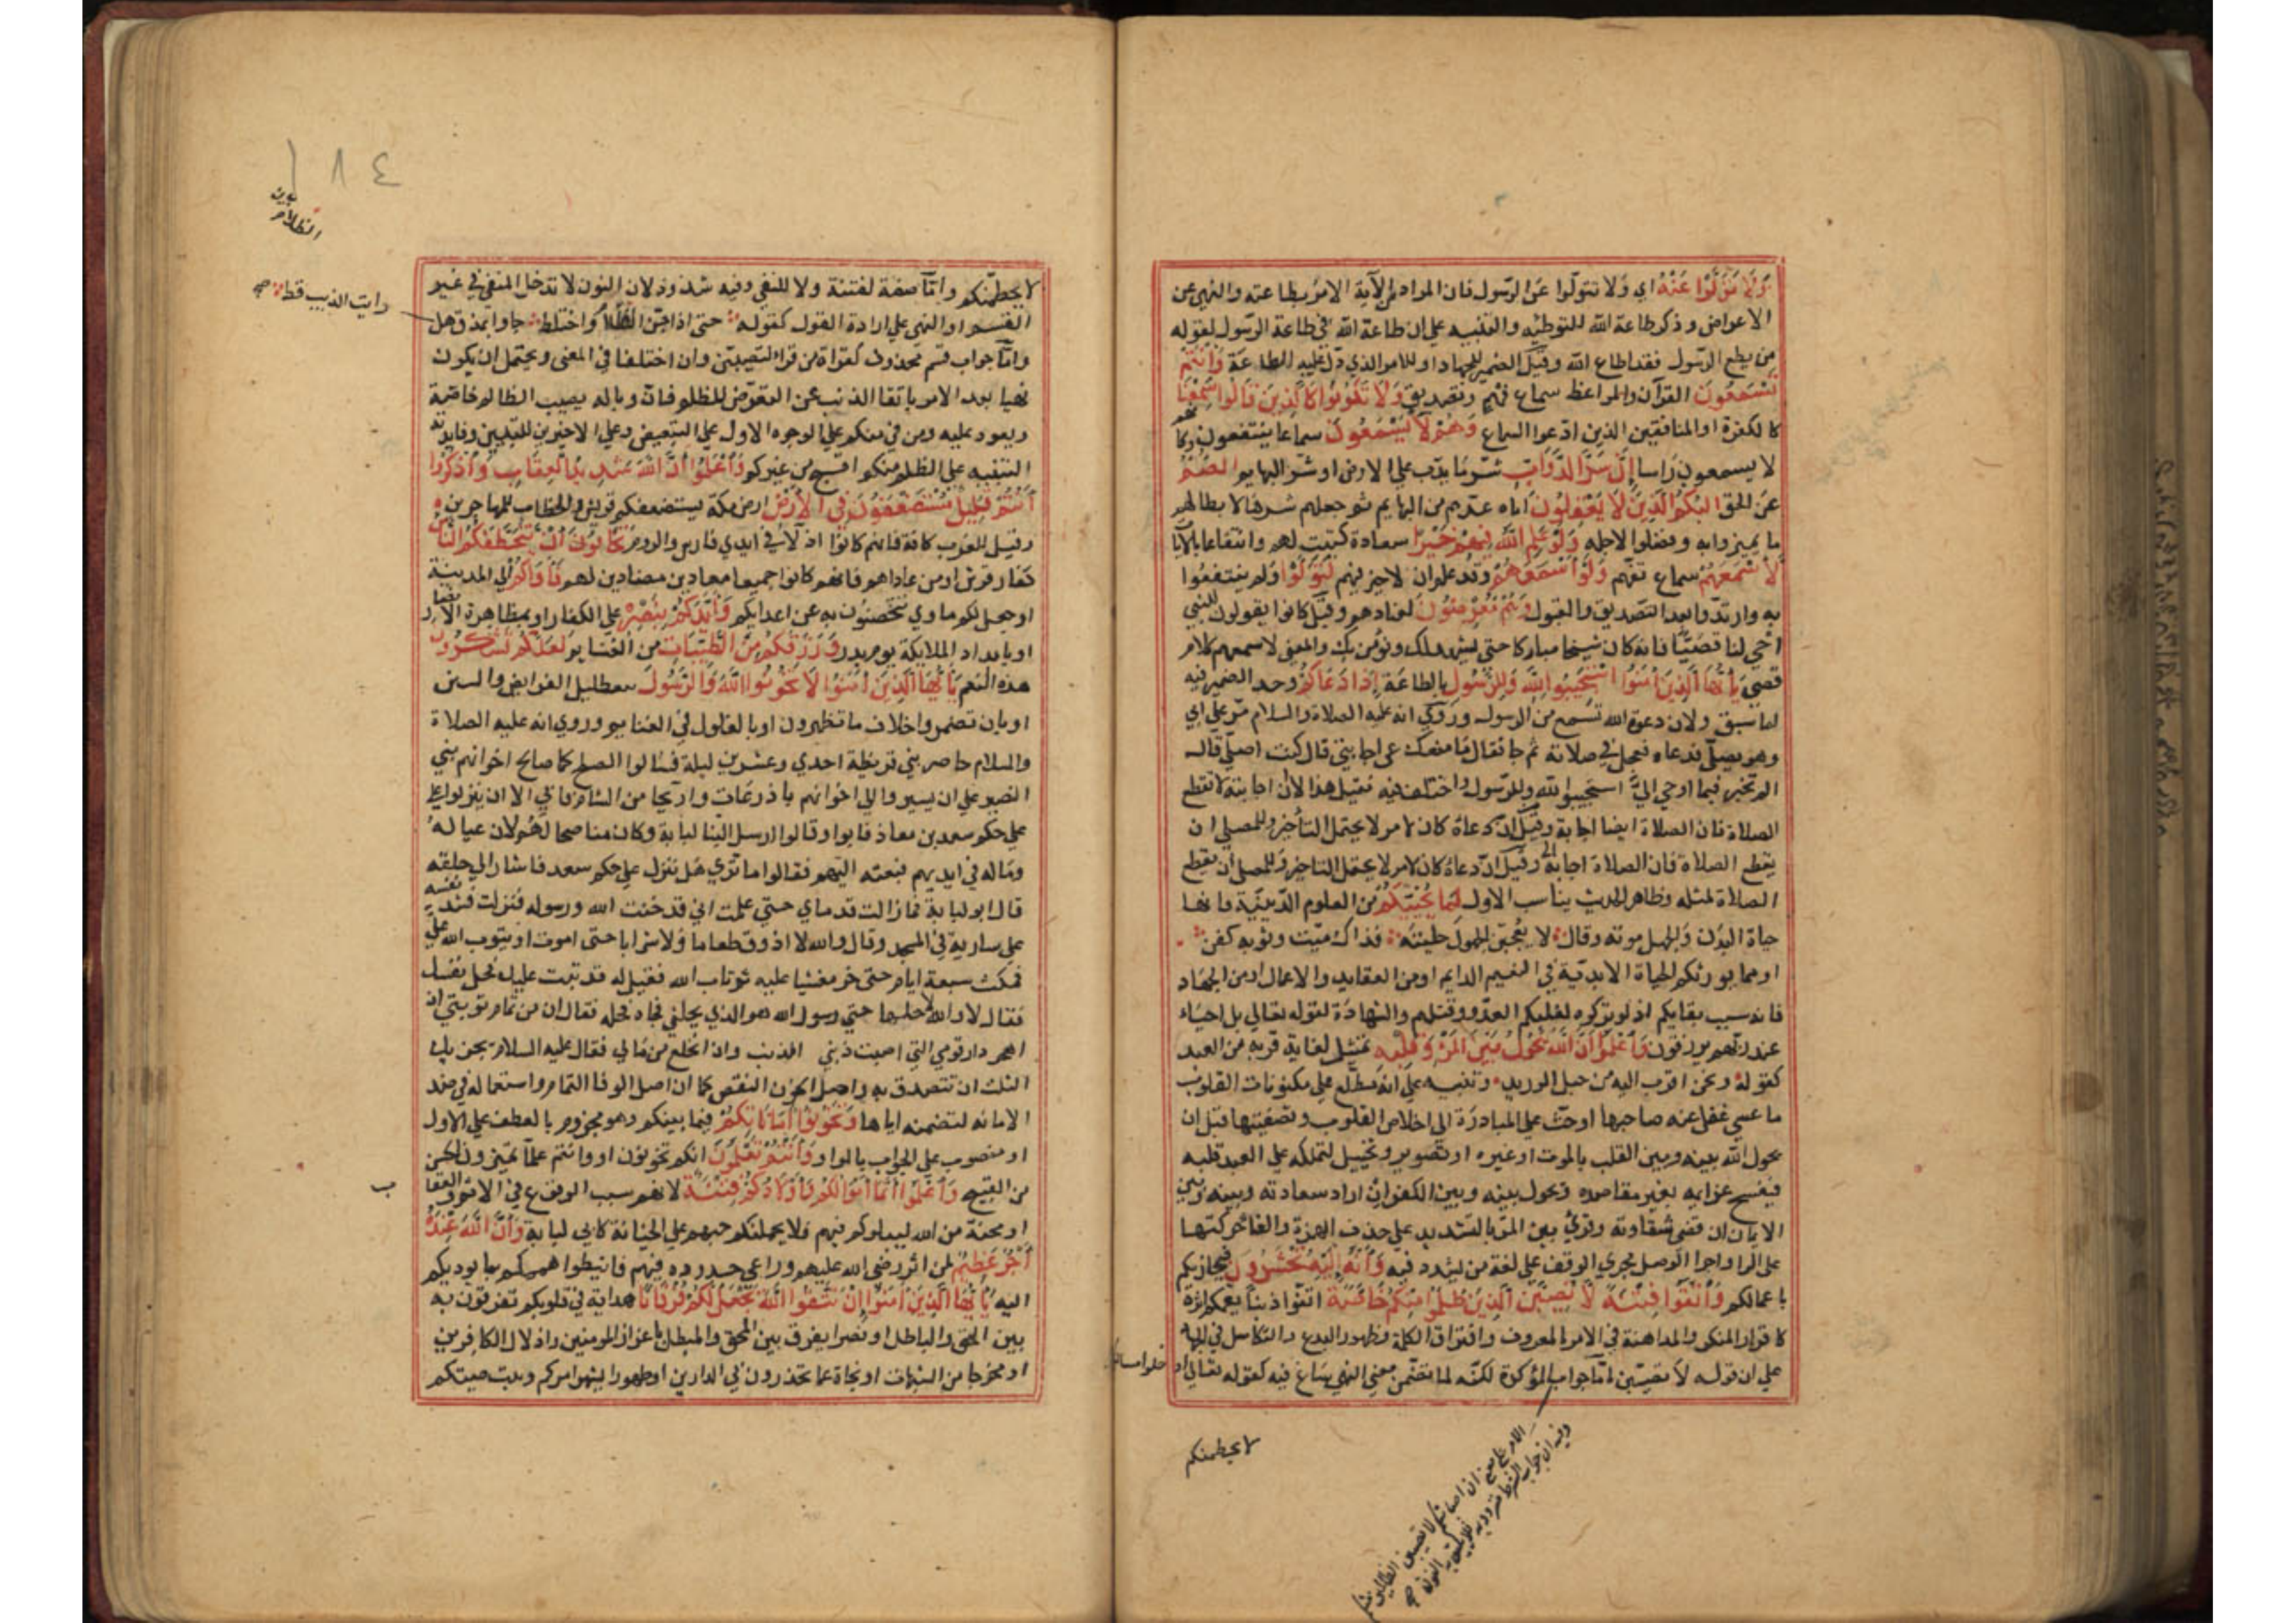 وَلَا تَوَلَّوْا عَنْهُ اي ولا تتولوا عن الرسول فان المراد من الآية الامر بطاعته والنهي عن
الاعراض وذكر طاعة الله للتوطئة والتنبيه علي ان طاعة الله في طاعة الرسول لقوله
من يطع الرسول فقد اطاع الله وقيل الضمير للجهاد او للامر الذي دل عليه الطاعة وَأَنْتُمْ
تَسْمَعُونَ القرآن والمواعظ سماع فهم وتصديق وَلَا تَكُونُوا كَالَّذِينَ قَالُوا سَمِعْنَا
كالكفرة او المنافقين الذين ادعوا السماع وَهُمْ لَا يَسْمَعُونَ سماعا ينتفعون به
لا يسمعون راسا إِنَّ شَرَّ الدَّوَابِّ شر ما يدب علي الارض او شر البهايم الصُّمُّ
عن الحق الْبُكْمُ الَّذِينَ لَا يَعْقِلُونَ اياه عدهم من البهايم ثم جعلهم شرها لابطالهم
ما يميزوا به وفضلوا لاجله وَلَوْ عَلِمَ اللَّهُ فِيهِمْ خَيْرًا سعادة كتبت لهم وانتفاعا بالآيات
لَأَسْمَعَهُمْ سماع تفهم وَلَوْ أَسْمَعَهُمْ وقد علم ان لا خير فيهم لَتَوَلَّوْا ولم ينتفعوا
به وارتدوا بعد التصديق والقبول وَهُمْ مُعْرِضُونَ لعنادهم وقيل كانوا يقولون للنبي
احي لنا قصيا فانه كان شيخا مباركا حتى يشهد لك ونؤمن بك والمعني لاسمعهم كلام
قصي يَا أَيُّهَا الَّذِينَ آمَنُوا اسْتَجِيبُوا لِلَّهِ وَلِلرَّسُولِ بالطاعة إِذَا دَعَاكُمْ وحد الضمير فيه
لما سبق ولان دعوة الله تسمع من الرسول وروي انه عليه الصلاة والسلام مر علي ابي
وهو يصلي فدعاه فعجل في صلاته ثم جا فقال ما منعك عن اجابتي قال كنت اصلي قال
الم تخبر فيما اوحي الي استجيبوا لله وللرسول واختلف فيه فقيل هذا لان اجابته لا تقطع
الصلاة فان الصلاة ايضا اجابة وقيل ان دعاه كان لامر لا يحتمل التأخير وللمصلي ان
يقطع الصلاة فان الصلاة اجابة وقيل ان دعاه كان لامر لا يحتمل التاخير وللمصلي ان يقطع
الصلاة لمثله وظاهر الحديث يناسب الاول لِمَا يُحْيِيكُمْ من العلوم الدينية فانها
حياة البدن والجهل موته وقال لا يعجبن الجهول حليته فذاك ميت وثوبه كفن
او مما يورثكم الحياة الابدية في النعيم الدايم او من العقايد والاعمال او من الجهاد
فانه سبب بقايكم اذ لو تركوه لغلبكم العدو وقتلهم والشهادة لقوله تعالي بل احياء
عند ربهم يرزقون وَاعْلَمُوا أَنَّ اللَّهَ يَحُولُ بَيْنَ الْمَرْءِ وَقَلْبِهِ تمثيل لغاية قربه من العبد
كقوله ونحن اقرب اليه من حبل الوريد وتنبيه علي انه مطلع علي مكنونات القلوب
ما عسي غفل عنه صاحبها او حث علي المبادرة الي اخلاص القلوب وتصفيتها قبل ان
يحول الله بينه وبين القلب بالموت او غيره او تصوير وتخييل لتملكه علي العبد قلبه
فيفسخ عزايمه بغير مقاصده ويحول بينه وبين الكفر ان اراد سعادته وبينه وبين
الايمان ان قضي شقاوته وقرئ بين المر بالتشديد علي حذف الهمزة والقاء حركتها
على الرا واجرا الوصل مجري الوقف علي لغة من يشدد فيه وَأَنَّهُ إِلَيْهِ تُحْشَرُونَ فيجازيكم
باعمالكم وَاتَّقُوا فِتْنَةً لَا تُصِيبَنَّ الَّذِينَ ظَلَمُوا مِنْكُمْ خَاصَّةً اتقوا ذنبا يعمكم اثره
كاقرار المنكر والمداهنة في الامر بالمعروف وافتراق الكلمة وظهور البدع والتكاسل في الجهاد
علي ان قوله لا تصيبن اما جواب المؤكدة لكنه لما تضمن معني النهي ساغ فيه كقوله تعالي اد
خلوا مساكنكم
لا يحطمنكم
١٨٤
رايت الذيب قط صح
لا يحطمنكم واما صفة لفتنة ولا للنفي وفيه شذوذ لان النون لا تدخل المنفي في غير
القسم او النهي علي ارادة القول كقوله حتى اذا جن الظلام واختلط جاوا بمذق هل
واما جواب قسم محذوف كقراة من قرا لتصيبن وان اختلفا في المعنى ويحتمل ان يكون
نهيا بعد الامر باتقا الذنب عن التعرض للظلم فان وباله يصيب الظالم خاصة
ويعود عليه ومن في منكم علي الوجوه الاول علي التبعيض وعلي الاخيرين للتبيين وفايدته
التنبيه علي الظلم منكم اقبح من غيركم وَاعْلَمُوا أَنَّ اللَّهَ شَدِيدُ الْعِقَابِ وَاذْكُرُوا
أَنْتُمْ قَلِيلٌ مُسْتَضْعَفُونَ فِي الْأَرْضِ ارض مكة يستضعفكم قريش والخطاب للمهاجرين
وقيل للعرب كافة فانهم كانوا اذلاء في ايدي فارس والروم تَخَافُونَ أَنْ يَتَخَطَّفَكُمُ النَّاسُ
كفار قريش او من عاداهم فانهم كانوا جميعا معادين مضادين لهم فَآوَاكُمْ الي المدينة
او جعل لكم ماوي تتحصنون به عن اعدايكم وَأَيَّدَكُمْ بِنَصْرِهِ علي الكفار او بمظاهرة الانصار
او بامداد الملايكة يوم بدر وَرَزَقَكُمْ مِنَ الطَّيِّبَاتِ من الغنايم لَعَلَّكُمْ تَشْكُرُونَ
هذه النعم يَا أَيُّهَا الَّذِينَ آمَنُوا لَا تَخُونُوا اللَّهَ وَالرَّسُولَ بتعطيل الفرايض والسنن
او بان تضمروا خلاف ما تظهرون او بالغلول في الغنايم وروي انه عليه الصلاة
والسلام حاصر بني قريظة احدي وعشرين ليلة فسالوا الصلح كما صالح اخوانهم بني
النضير علي ان يسيروا الي اخوانهم باذرعات واريحا من الشام فابي الا ان ينزلوا علي
علي حكم سعد بن معاذ فابوا وقالوا ارسل الينا ابا لبابة وكان مناصحا لهم لان عياله
وماله في ايديهم فبعثه اليهم فقالوا ما تري هل ننزل علي حكم سعد فاشار الي حلقه
قال ابو لبابة فما زالت قدماي حتي علمت اني قد خنت الله ورسوله فنزلت فشد نفسه
علي سارية في المسجد وقال والله لا اذوق طعاما ولا شرابا حتى اموت او يتوب الله علي
فمكث سبعة ايام حتى خر مغشيا عليه ثم تاب الله فقيل له قد تيب عليك فحل نفسك
فقال لا والله لا احلها حتي رسول الله هو الذي يحلني فجاه فحله فقال ان من تمام توبتي ان
اهجر دار قومي التي اصبت فيها الذنب وان انخلع من مالي فقال عليه السلام يجزيك
الثلث ان تتصدق به واصل الخون النقص كما ان اصل الوفا التمام واستعماله في ضد
الامانه لتضمنه اياها وَتَخُونُوا أَمَانَاتِكُمْ فيما بينكم وهو مجزوم بالعطف علي الاول
او منصوب علي الجواب بالواو وَأَنْتُمْ تَعْلَمُونَ انكم تخونون او وانتم علما تميزون الحسن
من القبيح وَاعْلَمُوا أَنَّمَا أَمْوَالُكُمْ وَأَوْلَادُكُمْ فِتْنَةٌ لانهم سبب الوقوع في الاثم والعقاب
او محنة من الله ليبلوكم فيهم فلا يحملنكم حبهم علي الخيانة كابي لبابة وَأَنَّ اللَّهَ عِنْدَهُ
أَجْرٌ عَظِيمٌ لمن اثر رضي الله عليهم وراعي حدوده فيهم فانيطوا هممكم بما يوديكم
اليه يَا أَيُّهَا الَّذِينَ آمَنُوا إِنْ تَتَّقُوا اللَّهَ يَجْعَلْ لَكُمْ فُرْقَانًا هداية في قلوبكم تفرقون به
بين الحق والباطل او نصرا يفرق بين المحق والمبطل باعزاز المومنين واذلال الكافرين
او مخرجا من الشبهات او نجاة عما تحذرون في الدارين او ظهورا يشهر امركم ويبث صيتكم